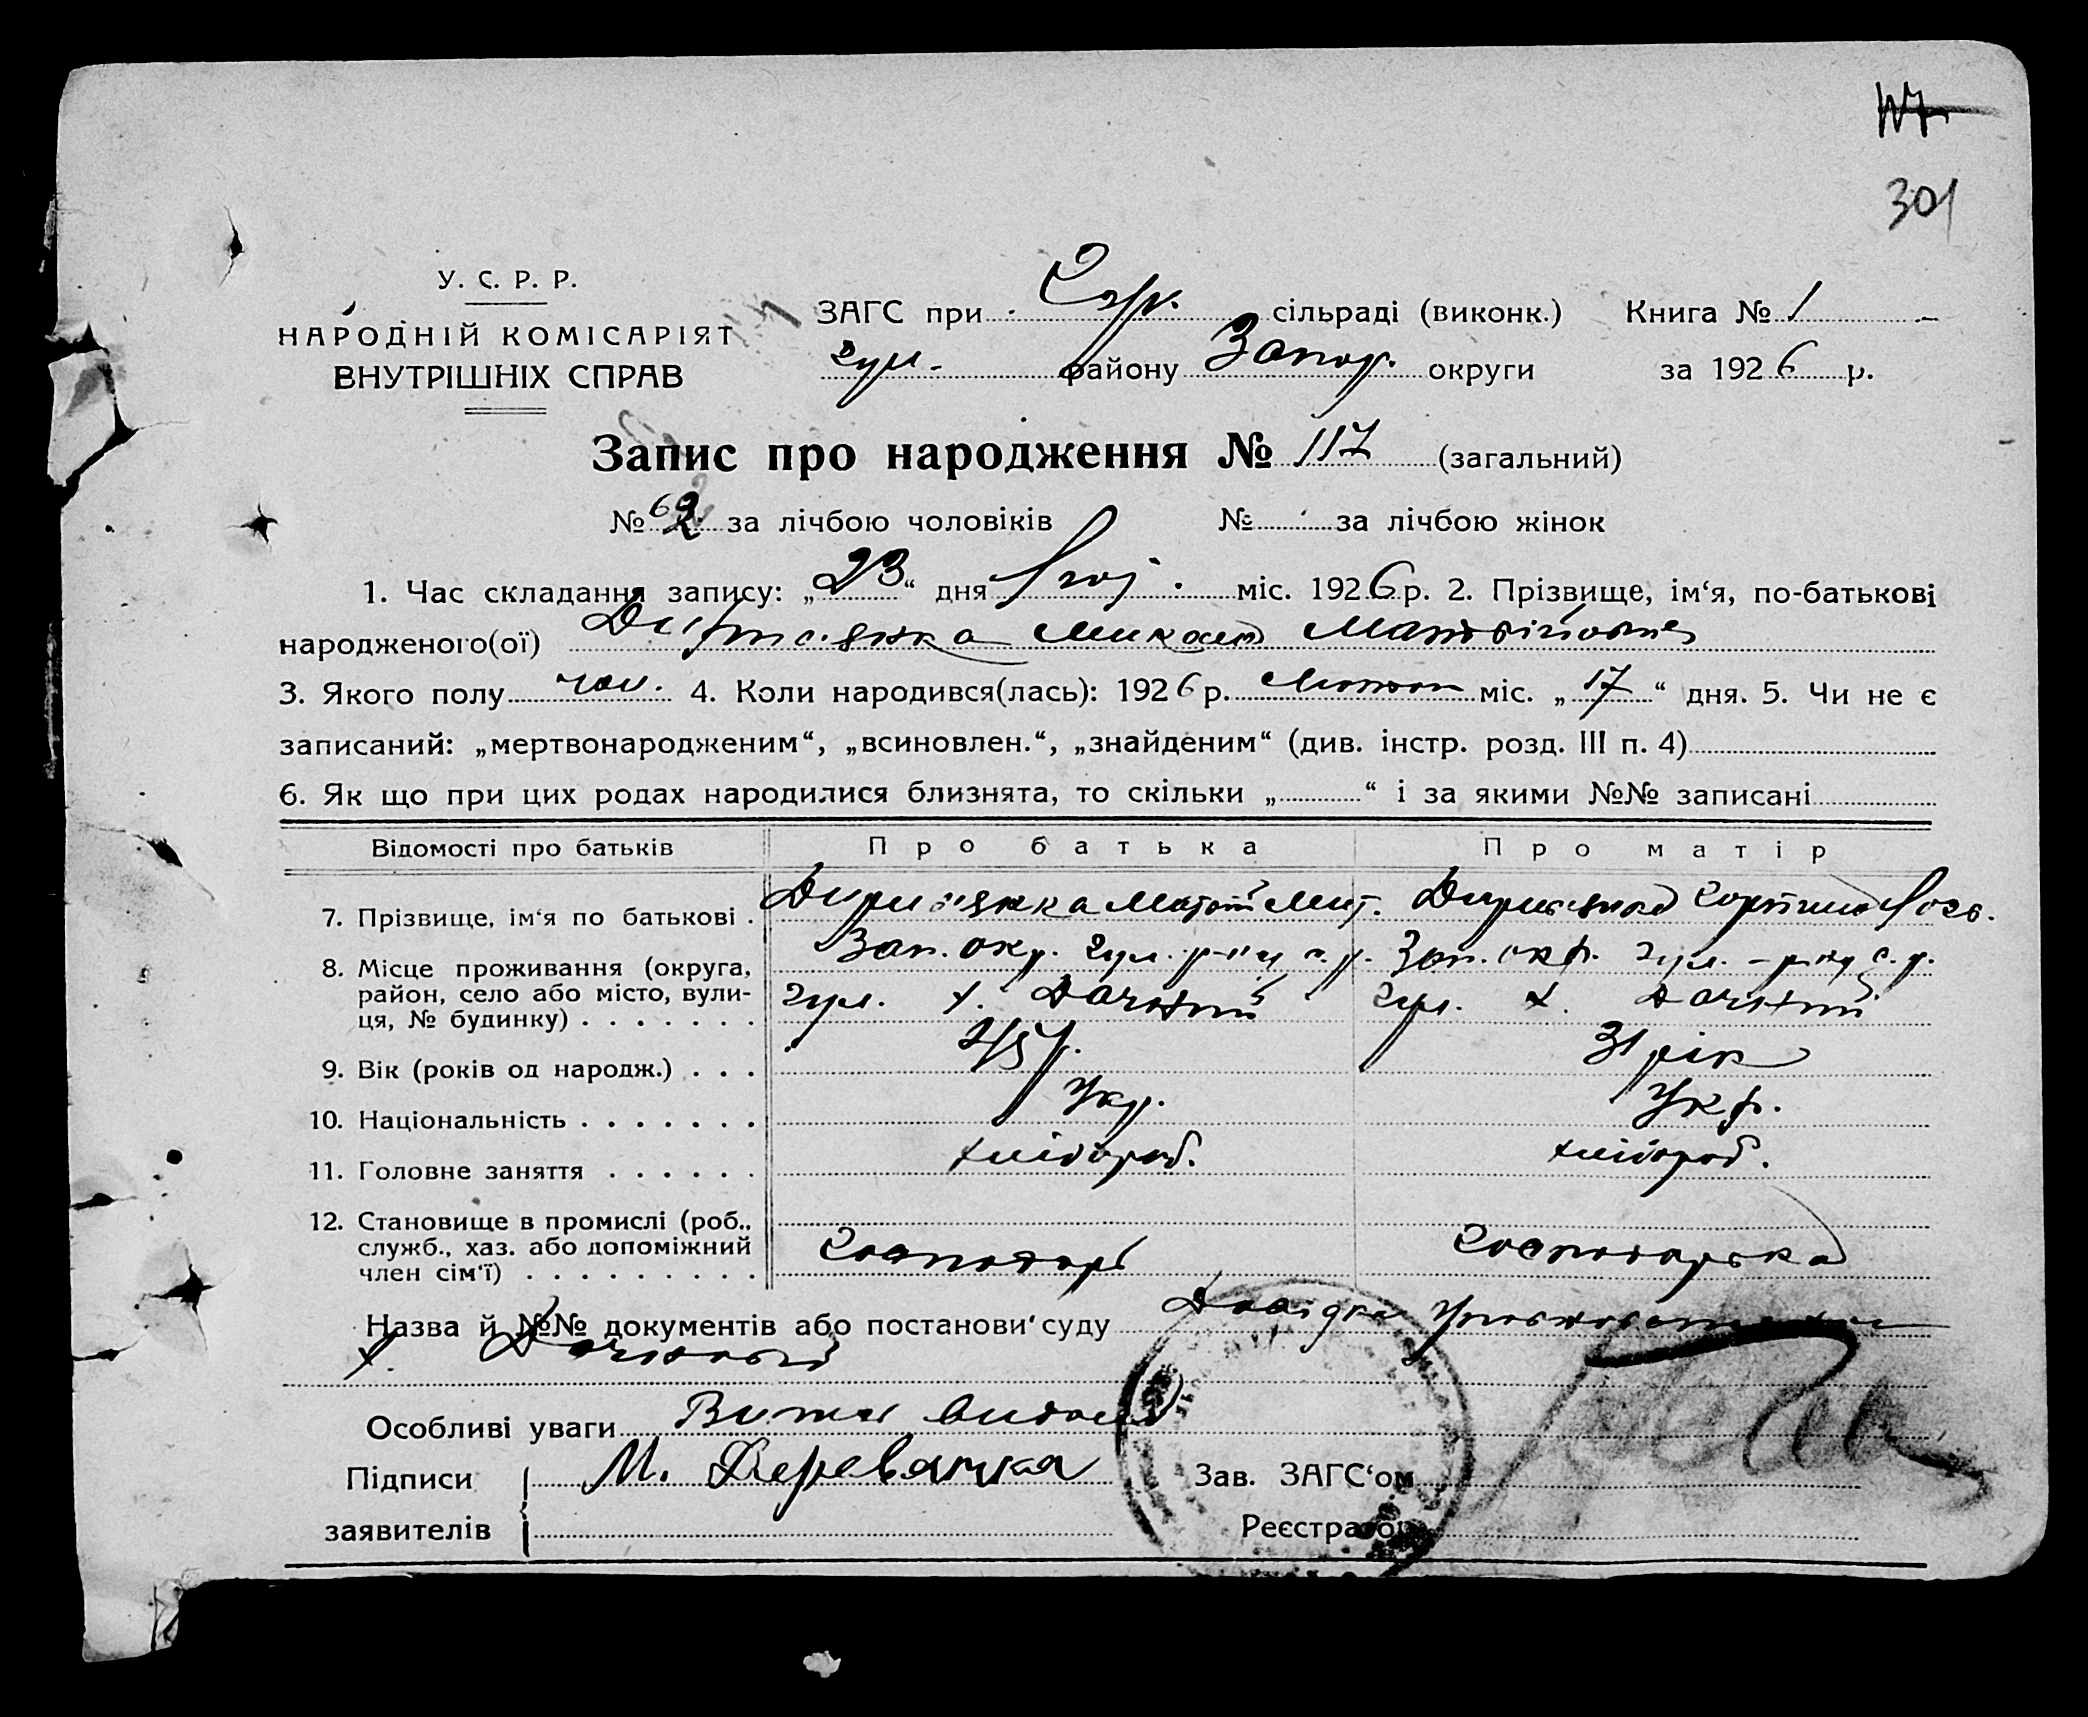 117
301
У. С. Р. Р.
НАРОДНІЙ КОМІСАРІЯТ
ВНУТРІШНІХ СПРАВ
ЗАГС при сільраді (виконк.) Книга № 1
Гул. району Запор. округи за 1926 р.
Запис про народження № 117 (загальний)
№ 62 за лічбою чоловіків № за лічбою жінок
1. Час складання запису: „23“ дня міс. 1926 р. 2. Прізвище, ім‘я, по-батькові
народженого(ої) Микола Матвійович
3. Якого полу чол. 4. Коли народився(лась): 1926 р. міс. „17“ дня. 5. Чи не є
записаний: „мертвонародженим“, „всиновлен.“, „знайденим“ (див. інстр. розд. III п. 4)
6. Як що при цих родах народилися близнята, то скільки „ “ і за якими №№ записані
Відомості про батьків Про батька Про матір
7. Прізвище, ім‘я по батькові . Матвій
8. Місце проживання (округа, Зап. окр. Гул. р-ну с. р. Зап. окр. Гул. р-ну с. р.
район, село або місто, вули- Гул. х. Дачний Гул. х. Дачний
ця, № будинку) . . . . . . .
9. Вік (років од народж.) . . . 45 р. 31 рік
10. Національність . . . . . . . Укр. Укр.
11. Головне заняття . . . . . . хлібороб. хлібороб.
12. Становище в промислі (роб.,
служб., хаз. або допоміжний Господарь Господарька
член сім‘ї) . . . . . . . . .
Назва й №№ документів або постанови суду Довідка Уповноваженого
х.
Особливі уваги
Підписи М. Деревянка Зав. ЗАГС‘ом
заявителів Реєстратор